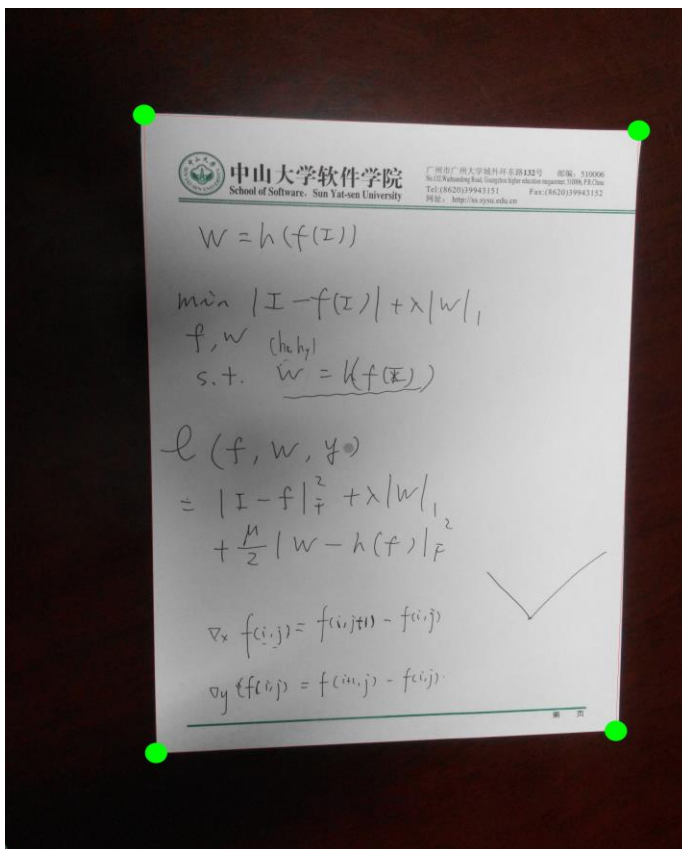 中山大学软件学院
School of Software, Sun Yat-sen University
广州市广州大学城外环东路132号 邮编：510006
No.132, Waihuandong Road, Guangzhou higher education megacenter, 510006, P.R.China
Tel:(8620)39943151 Fax:(8620)39943152
网址： http://ss.sysu.edu.cn
W = h(f(I))
min |I - f(I)| + λ|W|₁
f, W (hx, hy)
s.t. W = h(f(I))
ℓ(f, W, y)
= |I - f|²F + λ|W|₁
+ μ/2 |W - h(f)|²F
∇x f(i,j) = f(i,j+1) - f(i,j)
∇y f(i,j) = f(i+1,j) - f(i,j).
第 页